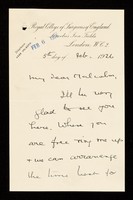 Royal College of Surgeons of England
Lincoln's Inn Fields
London, W.C.2
5th day of Feb. 1926
FEB 6
My dear Malcolm,
I'll be very
glad to see you
here. When you
are free ring me up
& we can arrange
the time here for